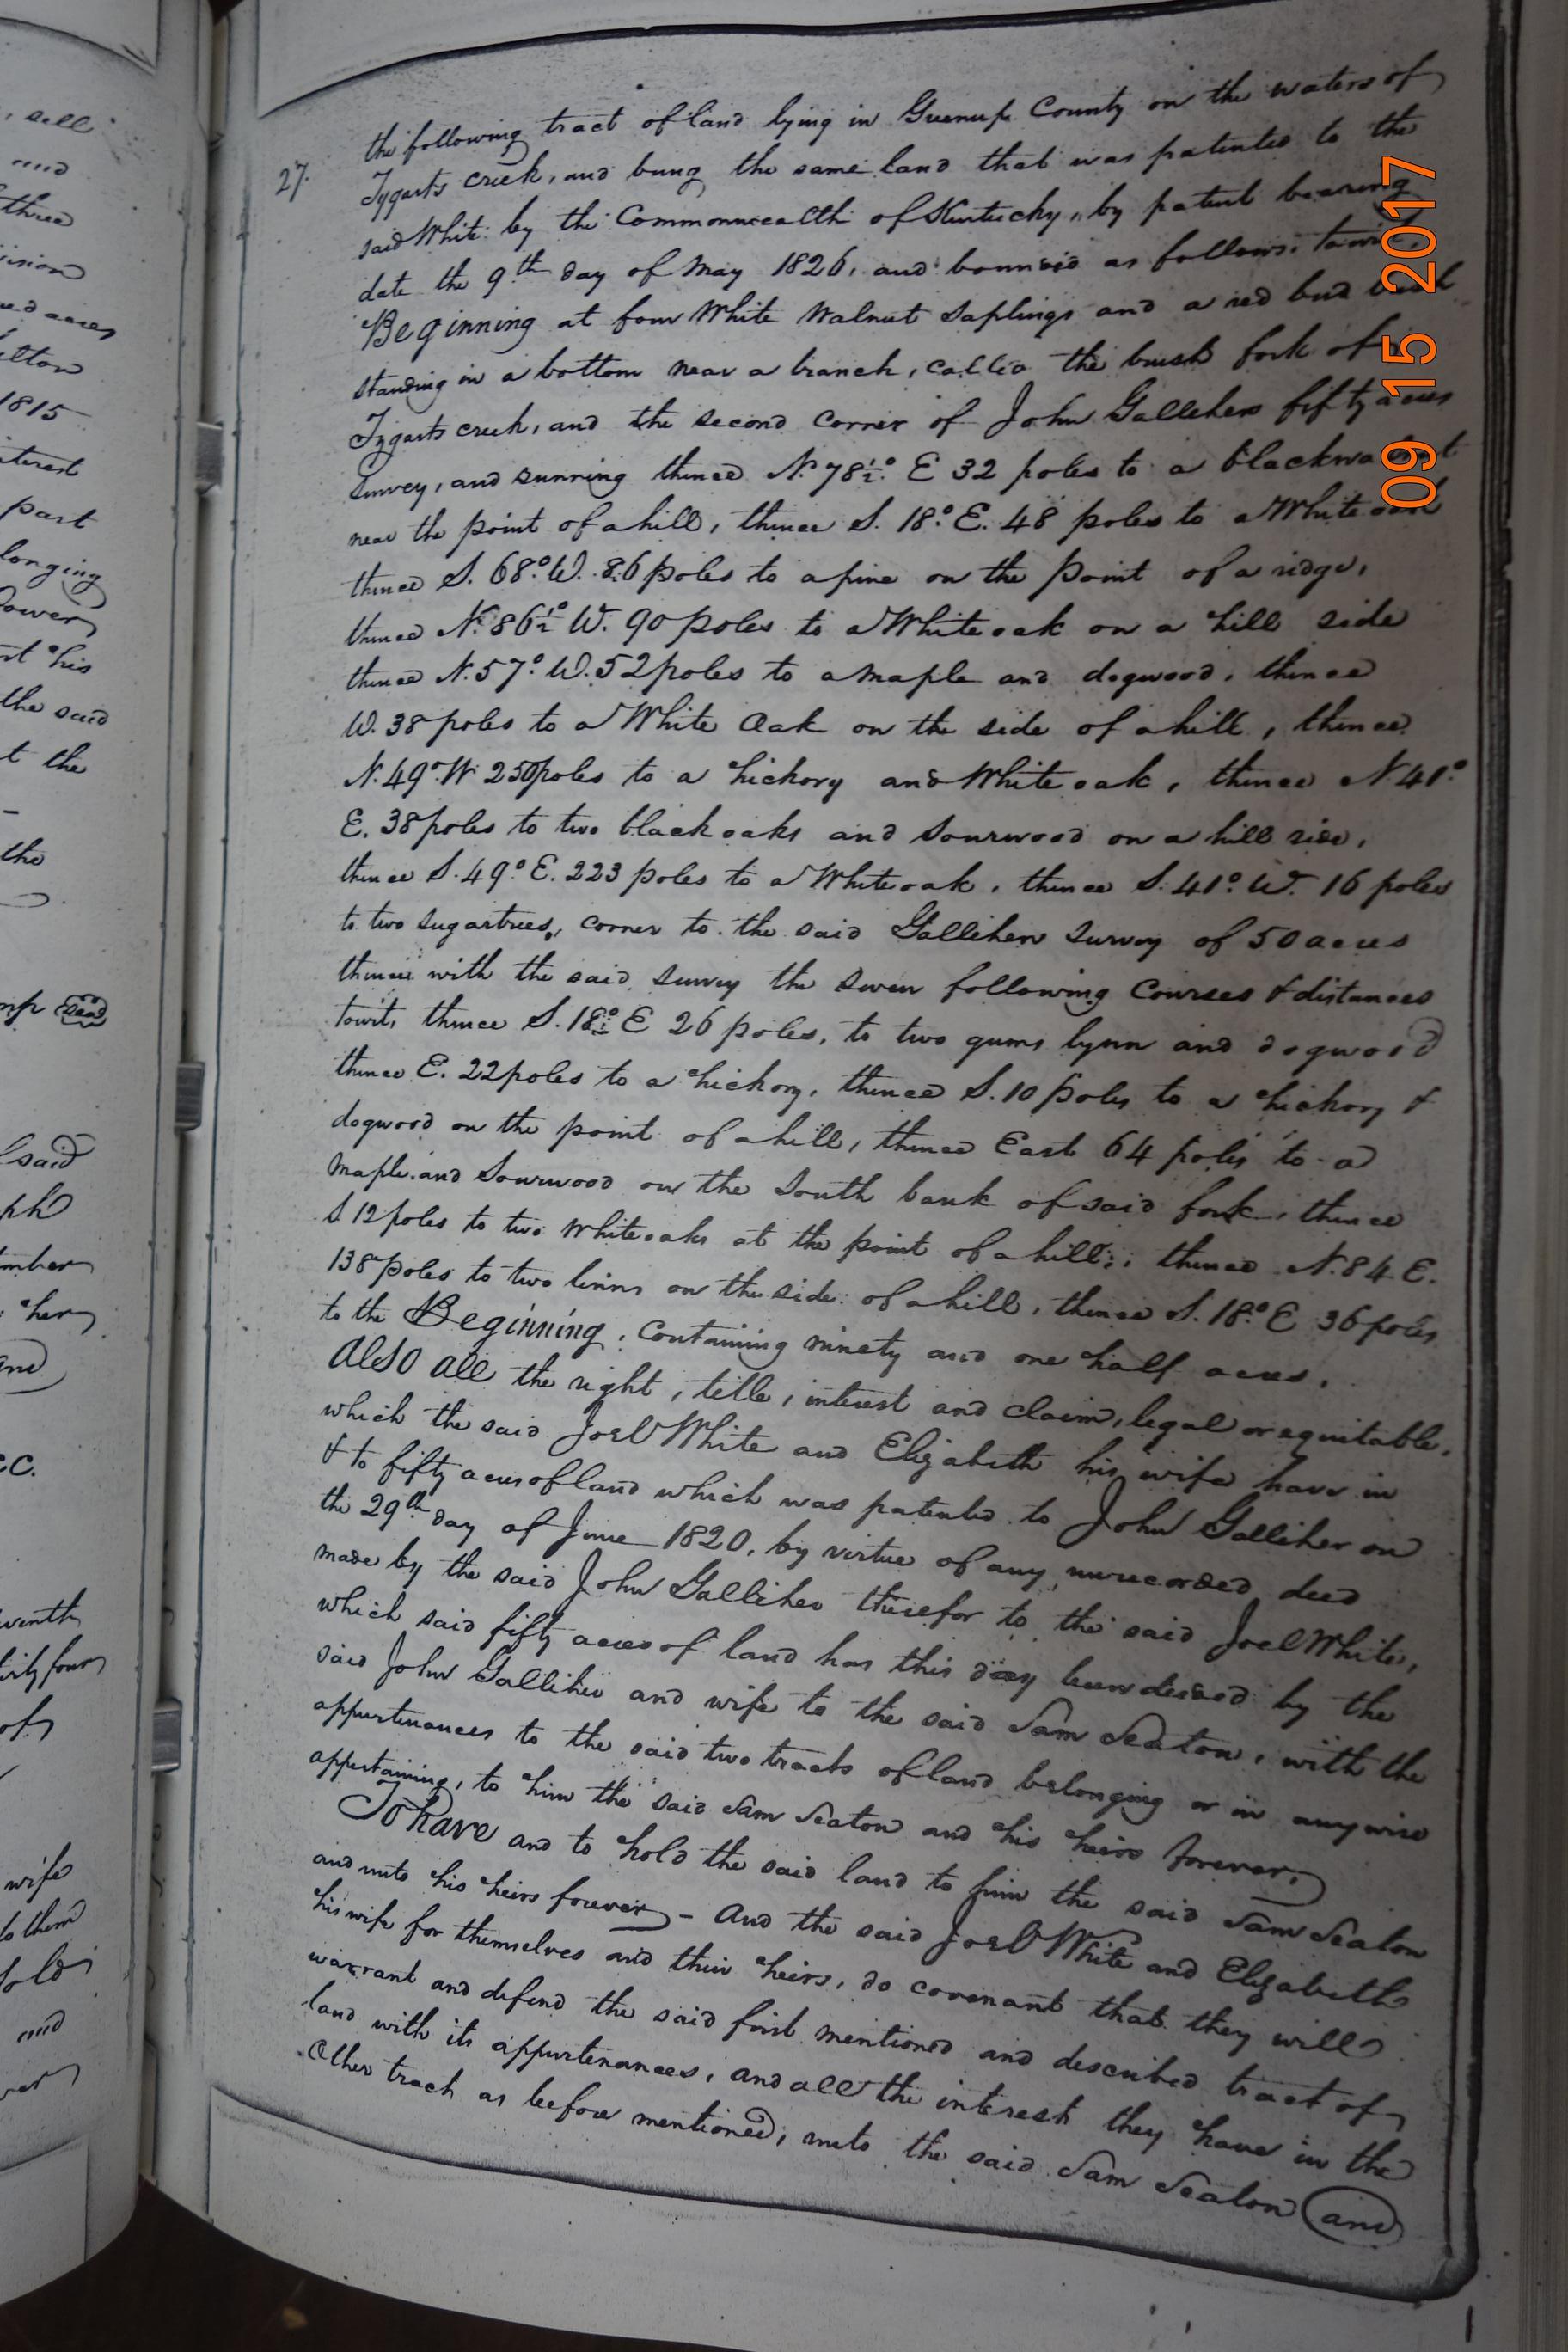 , sell
and
three
ision
ed acres
lton
1815
terest
part
longing
Power
rt his
the said
t the
the
mp Seal
said
ph
mber
her
and
&C.
venth
irty four
of
wife
to them
sold
and
ver
27.
the following tract of land lying in Greenup County on the waters of
Tygarts creek, and being the same land that was patented to the
said White by the Commonwealth of Kentucky, by patent bearing
date the 9th day of May 1826, and bounded as follows, towit,
Beginning at four White Walnut Saplings and a red bud bush
standing in a bottom near a branch, called the brush fork of
Tygarts creek, and the second corner of John Gallihers fifty acres
Survey, and running thence N. 78½° E 32 poles to a black walnut
near the point of a hill, thence S. 18° E. 48 poles to a White oak
thence S. 68° W. 86 poles to a pine on the point of a ridge,
thence N. 86½° W. 90 poles to a White oak on a hill side
thence N. 57° W. 52 poles to a maple and dogwood, thence
W. 38 poles to a White Oak on the side of a hill, thence
N. 49° W 250 poles to a hickory and White oak, thence N 41°
E. 38 poles to two black oaks and Sourwood on a hill side,
thence S. 49° E. 223 poles to a White oak, thence S. 41° W. 16 poles
to two sugartrees, corner to the said Galliher Survey of 50 acres
thence with the said survey the seven following Courses & distances
towit, thence S. 18° E 26 poles, to two gums lynn and dogwood
thence E. 22 poles to a hickory, thence S. 10 poles to a hickory &
dogwood on the point of a hill, thence East 64 poles to a
maple and Sourwood on the South bank of said fork, thence
S 12 poles to two white oaks at the point of a hill, thence N. 84 E.
138 poles to two linns on the side of a hill, thence S. 18° E 36 poles
to the Beginning, Containing ninety and one half acres,
Also all the right, title, interest and claim, legal or equitable,
which the said Joel White and Elizabeth his wife have in
& to fifty acres of land which was patented to John Galliher on
the 29th day of June 1820, by virtue of any unrecorded deed
made by the said John Galliher therefor to the said Joel White,
which said fifty acres of land has this day been deeded by the
said John Galliher and wife to the said Sam Seaton, with the
appurtenances to the said two tracts of land belonging or in anywise
appertaining, to him the said Sam Seaton and his heirs forever,
To have and to hold the said land to him the said Sam Seaton
and unto his heirs forever - And the said Joel White and Elizabeth
his wife for themselves and their heirs, do covenant that they will
warrant and defend the said first mentioned and described tract of
land with its appurtenances, and all the interest they have in the
other tract as before mentioned, unto the said Sam Seaton and
09 15 2017